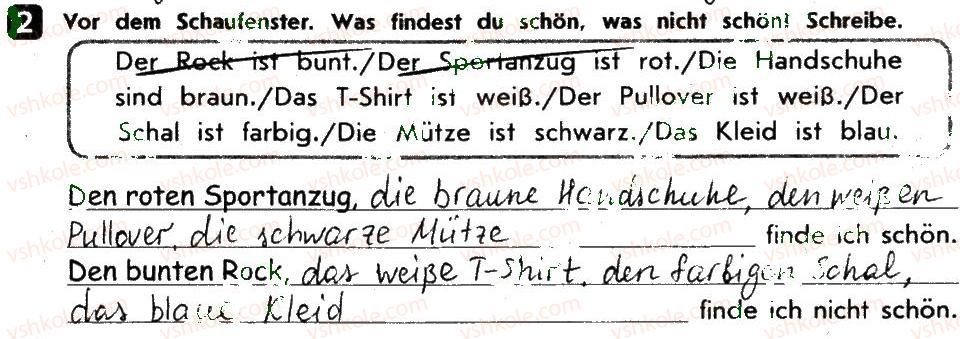 2 Vor dem Schaufenster. Was findest du schön, was nicht schön? Schreibe.
Der Rock ist bunt./Der Sportanzug ist rot./Die Handschuhe
sind braun./Das T-Shirt ist weiß./Der Pullover ist weiß./Der
Schal ist farbig./Die Mütze ist schwarz./Das Kleid ist blau.
Den roten Sportanzug, die braune Handschuhe, den weißen
Pullover, die schwarze Mütze finde ich schön.
Den bunten Rock, das weiße T-Shirt, den farbigen Schal,
das blaue Kleid finde ich nicht schön.